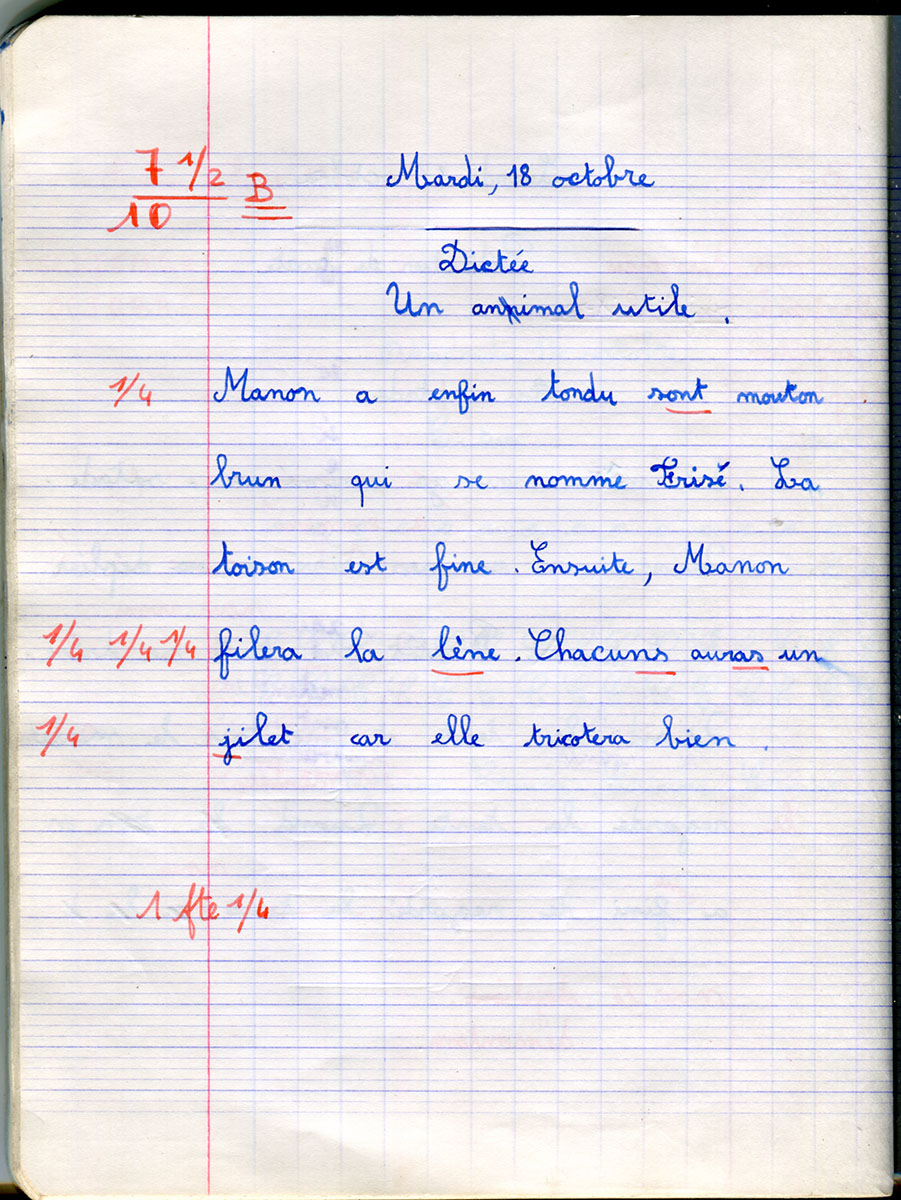 7 1/2 Mardi, 18 octobre
10 B
Dictée
Un animal utile.
1/4 Manon a enfin tondu sont mouton
brun qui se nomme Frisé. La
toison est fine. Ensuite, Manon
1/4 1/4 1/4 filera la lène. Chacuns auras un
1/4 jilet car elle tricotera bien.
1 fte 1/4